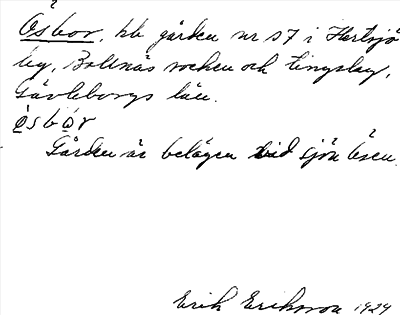 Åsbor, bb gården nr 57 i Hertsjö
by, Bollnäs socken och tingslag,
Gävleborgs län.
o̱sbo̱r
Gården är belägen vid sjön Åsen.
Erik Eriksson 1924